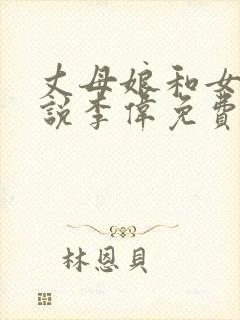 丈母娘和女
說李偉免費
林恩貝